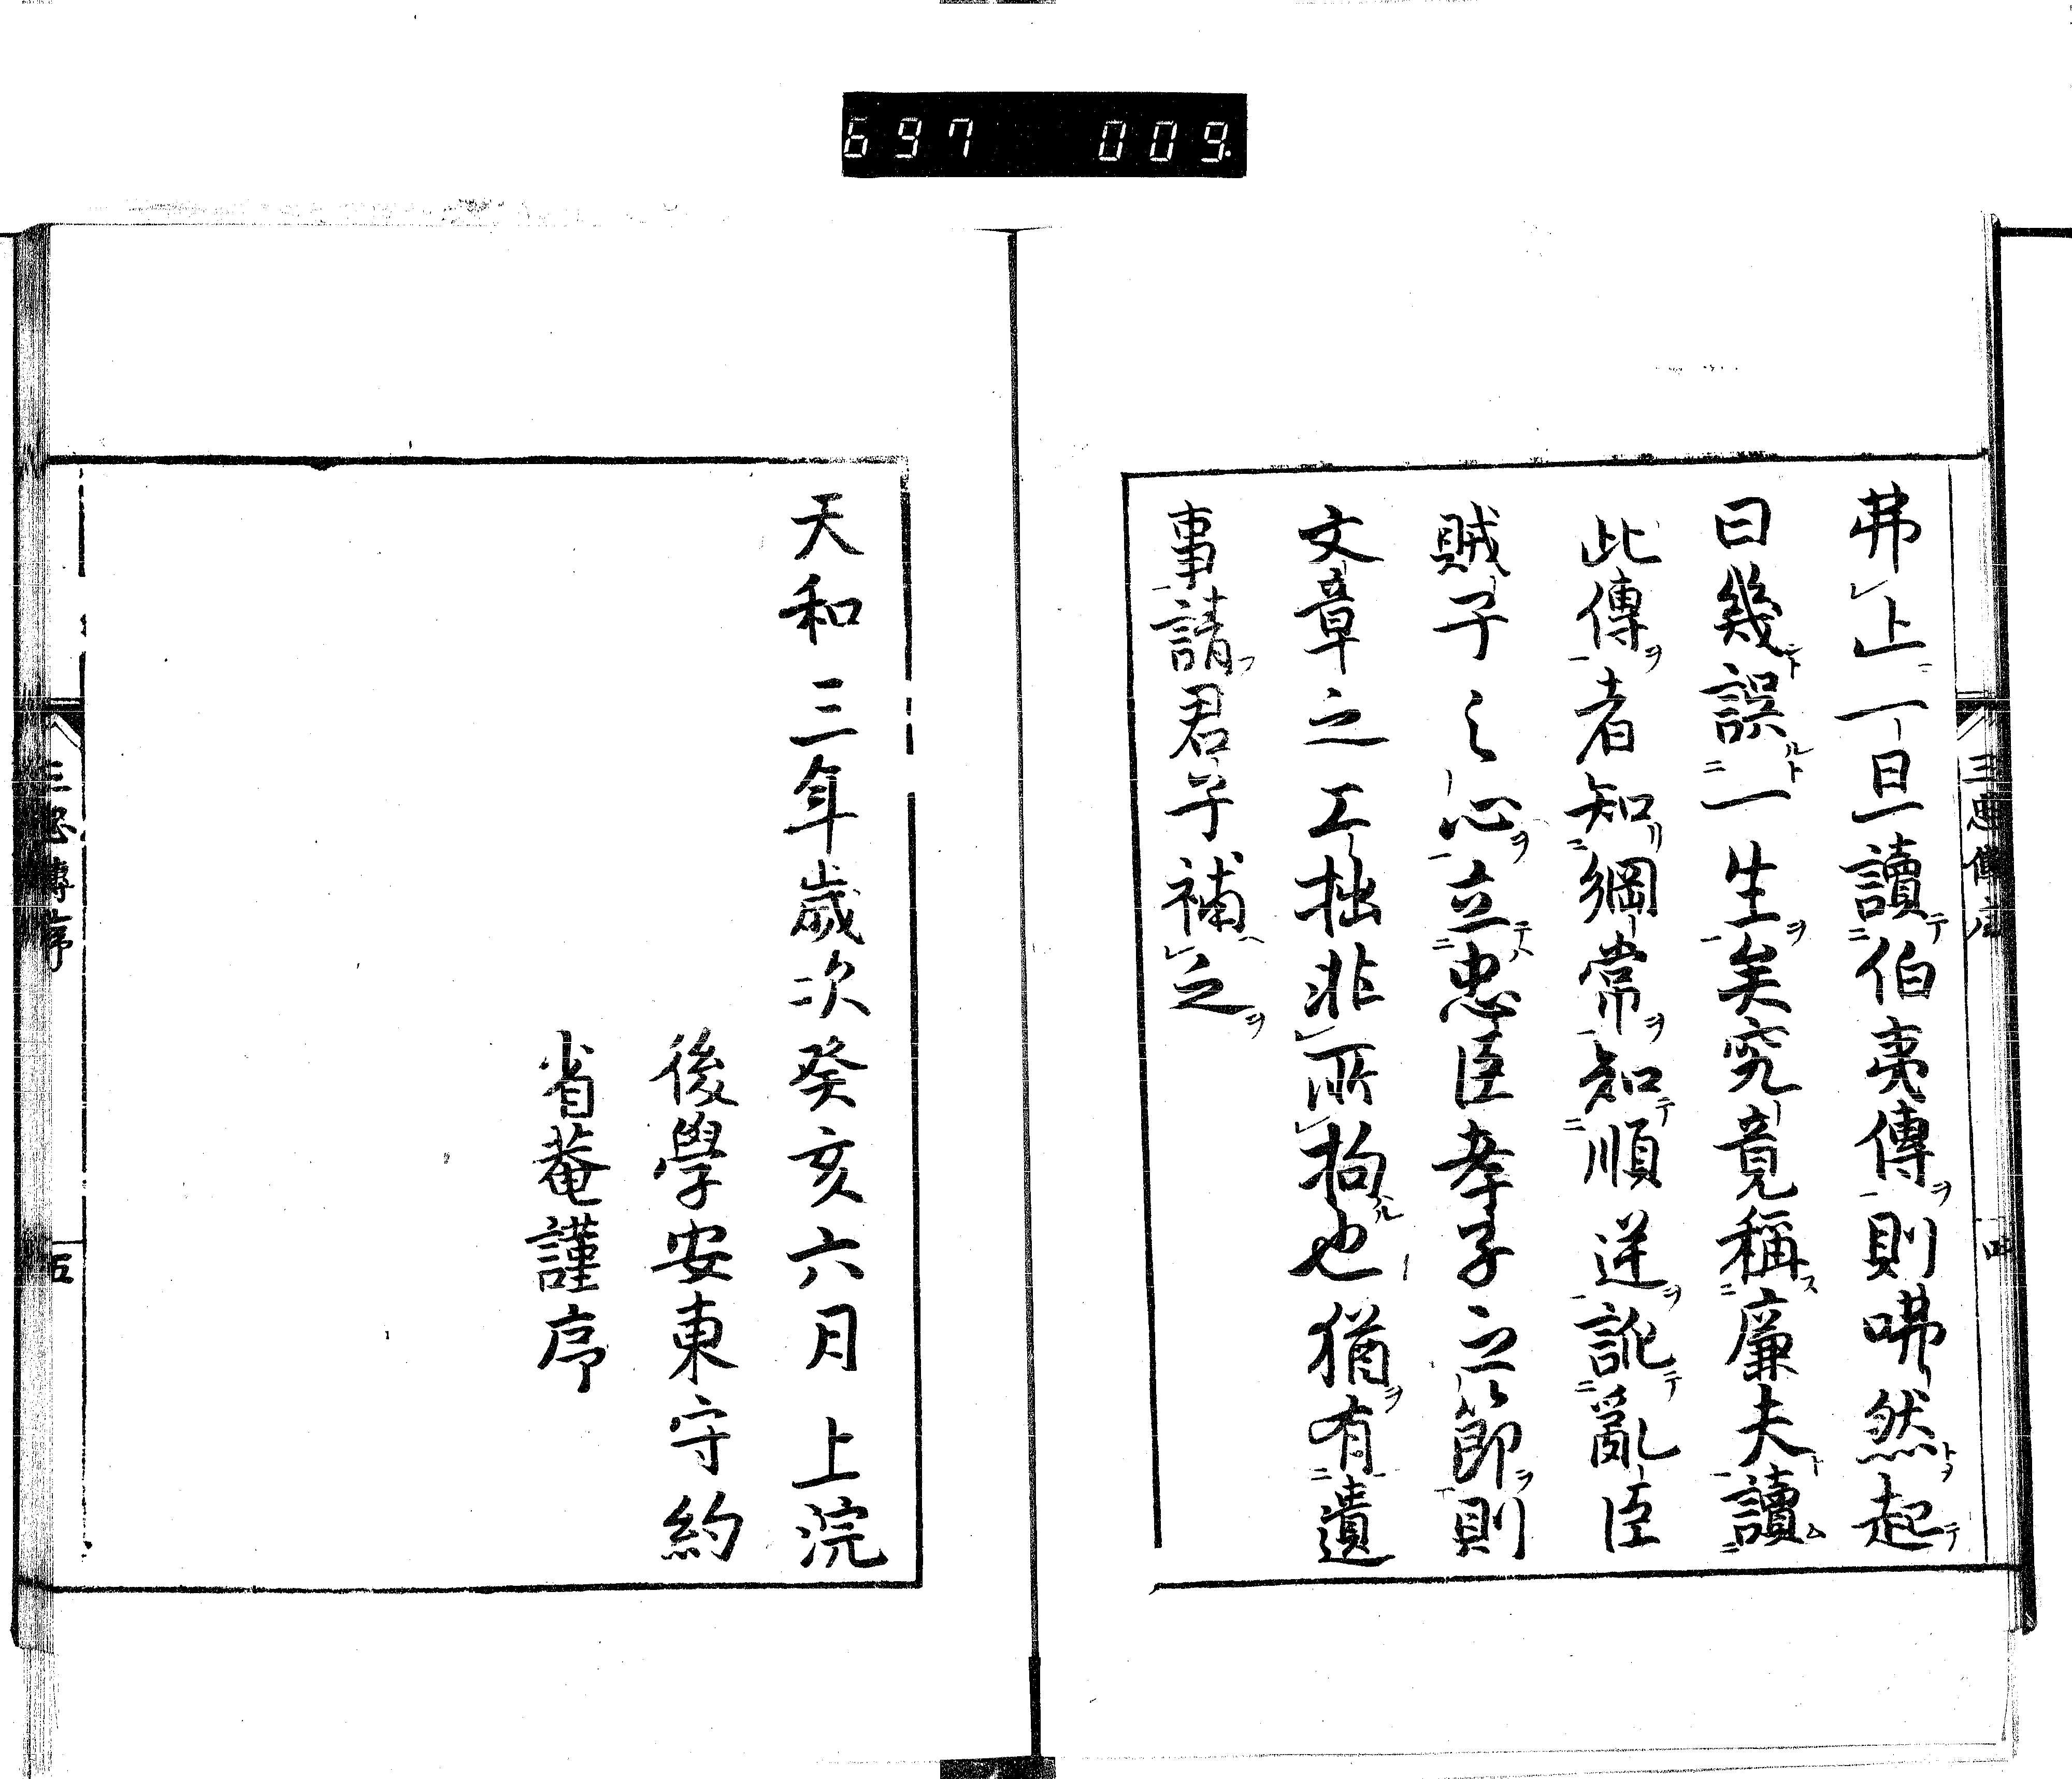 697 009
三忠傳序
四
弗止一旦讀伯夷傳則咈然起
曰幾誤一生矣究竟稱廉夫讀
此傳者知綱常知順逆訛亂臣
賊子之心立忠臣孝子之節則
文章之工拙非所拘也猶有遺
事請君子補之
天和三年歲次癸亥六月上浣
後學安東守約
省菴謹序
三忠傳序
五